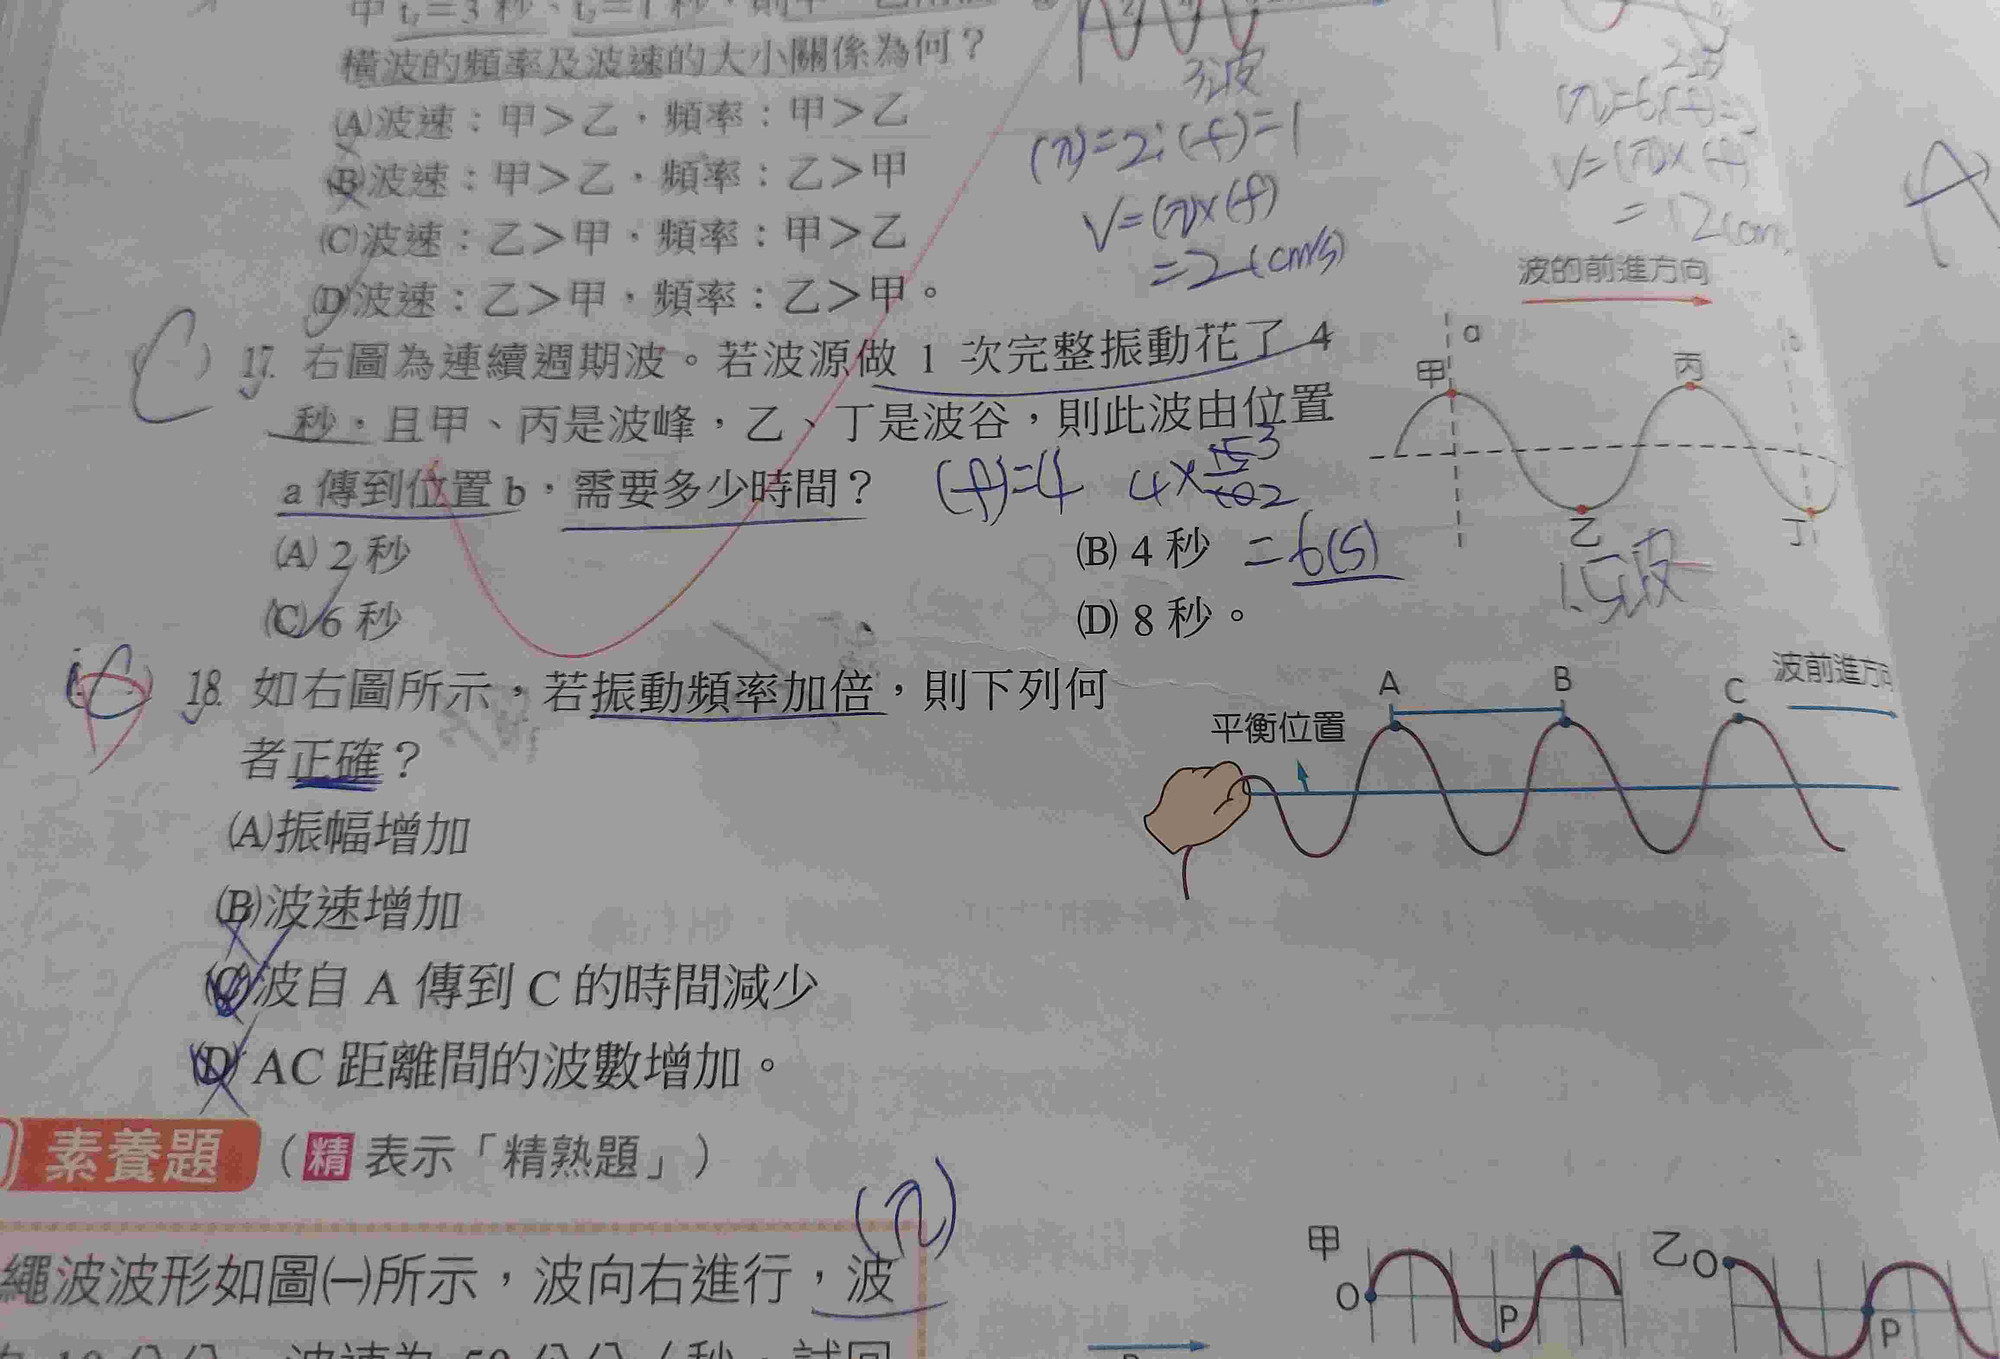 甲 t₁=3 秒、t₂=1 秒，則甲、乙
橫波的頻率及波速的大小關係為何？
(A)波速：甲＞乙，頻率：甲＞乙
(B)波速：甲＞乙，頻率：乙＞甲
(C)波速：乙＞甲，頻率：甲＞乙
(D)波速：乙＞甲，頻率：乙＞甲。
3波
(λ)=2; (f)=1
V=(λ)×(f)
=2(cm/s)
2波
V=(λ)×(f)
=12(cm
(C) 17. 右圖為連續週期波。若波源做 1 次完整振動花了 4
秒，且甲、丙是波峰，乙、丁是波谷，則此波由位置
a 傳到位置 b，需要多少時間？
(f)=4
(A) 2 秒
(B) 4 秒
=6(s)
(C) 6 秒
(D) 8 秒。
波的前進方向
a
b
甲
丙
乙
丁
1.5波
(C) 18. 如右圖所示，若振動頻率加倍，則下列何
者正確？
(A)振幅增加
(B)波速增加
(C)波自 A 傳到 C 的時間減少
(D) AC 距離間的波數增加。
A
B
C
波前進方向
平衡位置
素養題（精 表示「精熟題」）
(λ)
繩波波形如圖(一)所示，波向右進行，波
甲
O
P
乙
O
P